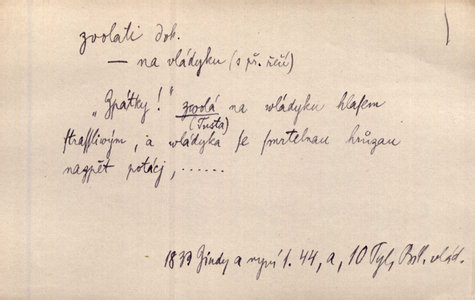 zvolati dok.
— na vládyku (s př. řečí)
„Zpátky!" zwolá na wládyku hlasem
(Tusta)
strassliwým, a wládyka se smrtelnau hrůzau
nazpět potácj, ......
1839 Gindy a nynj 1. 44, a, 10 Tyl,